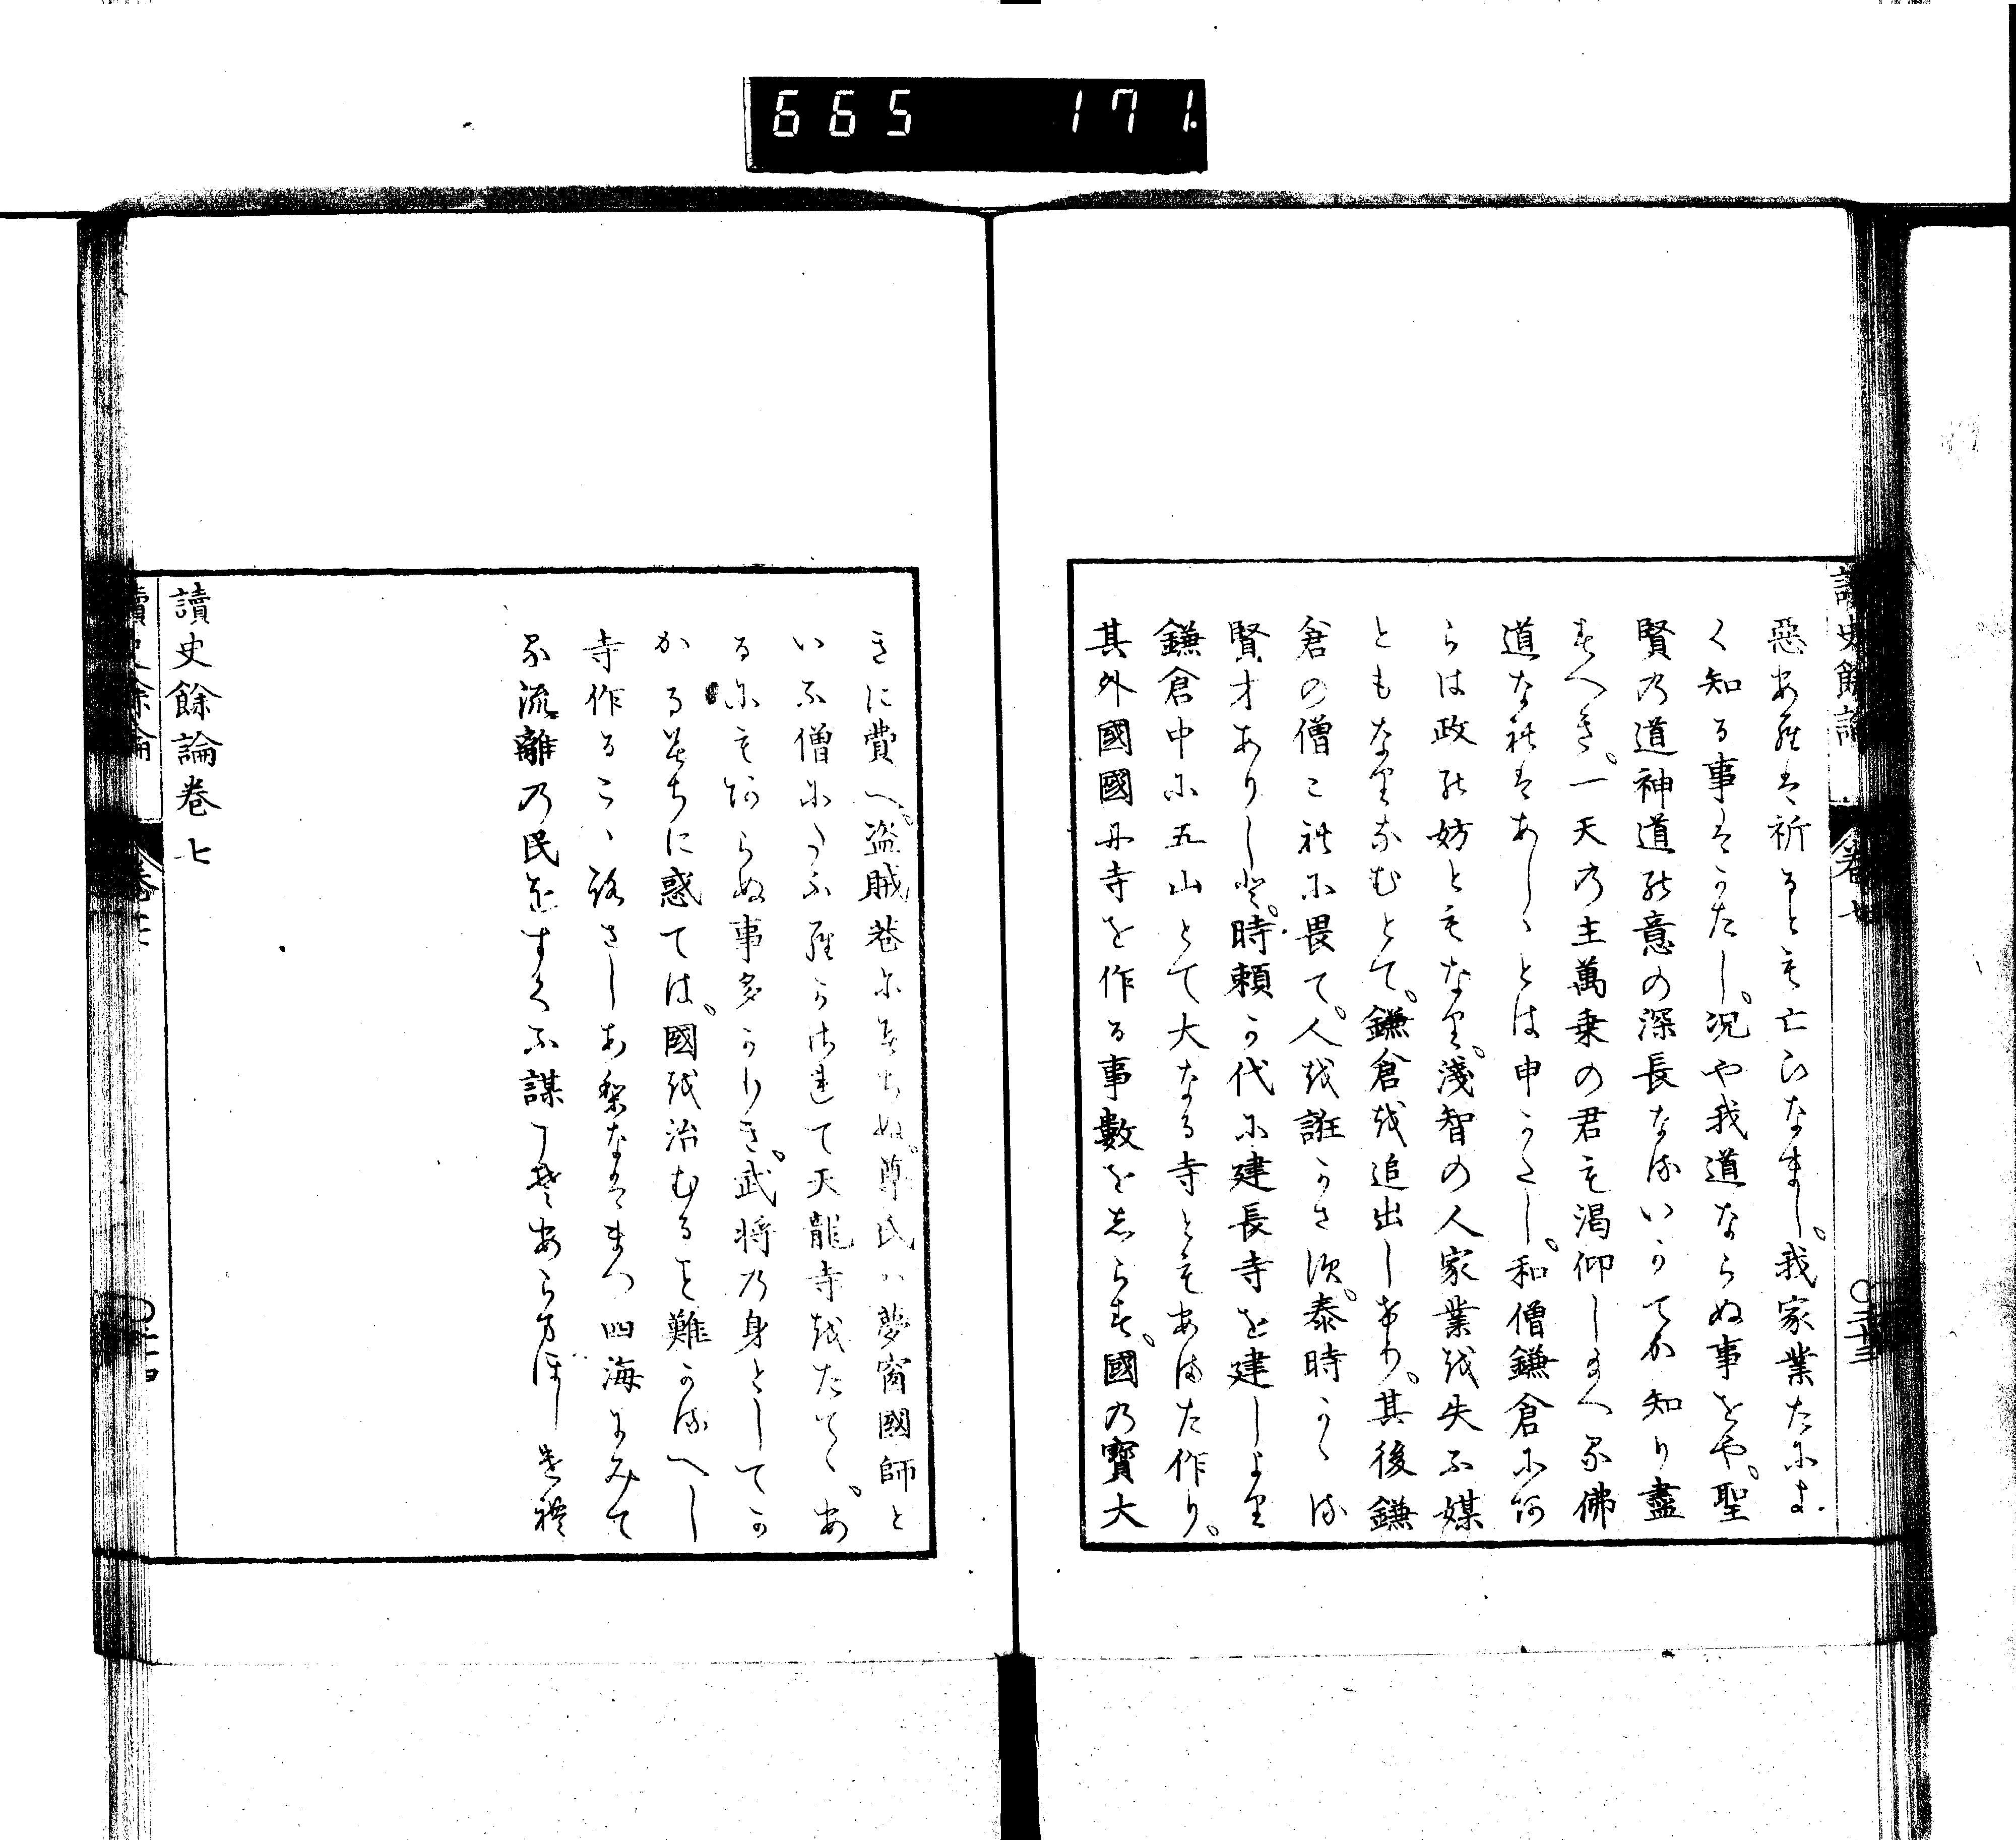 665 171
惡あれは祈るとも亡ひなまし。我家業たによ
く知る事はかたし。况や我道ならぬ事をや。聖
賢の道神道の意の深長なるいかてか知り盡
すへき。一天の主萬乗の君も渇仰し給へる佛
道なれはあしゝとは申かたし。和僧鎌倉にあ
らは政の妨ともなり。淺智の人家業を失ふ媒
ともなりなむとて。鎌倉を追出しけり。其後鎌
倉の僧これに畏て。人を誑かさす。泰時かゝる
賢才ありしに。時頼か代に建長寺を建しより
鎌倉中に五山とて大なる寺ともあまた作り。
其外國國に寺を作る事數をしらす。國の寶大
きに費へ。盗賊巷にみちぬ。尊氏は夢窗國師と
いふ僧にたふらかされて天龍寺をたてゝ。あ
るにもあらぬ事多かりき。武將の身としてか
かるみちに惑ては。國を治むるを難かるへし
寺作るこゝろさしあらはなとまつ四海にみて
る流離の民をすくふ謀にはあらさりけれ
讀史餘論巻七